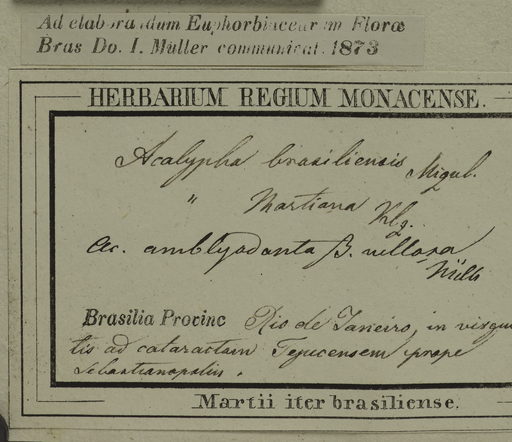 Ad elaborandum Euphorbiacearum Floræ
Bras Do. I. Müller communicat. 1873
HERBARIUM REGIUM MONACENSE.
Acalypha brasiliensis
" Martiana Klz.
Ac. amblyodonta β. villosa
Müll
Brasilia Provinc Rio de Janeiro, in virgul
tis ad cataractam Tejucensem prope
Sebastianopolin.
Martii iter brasiliense.